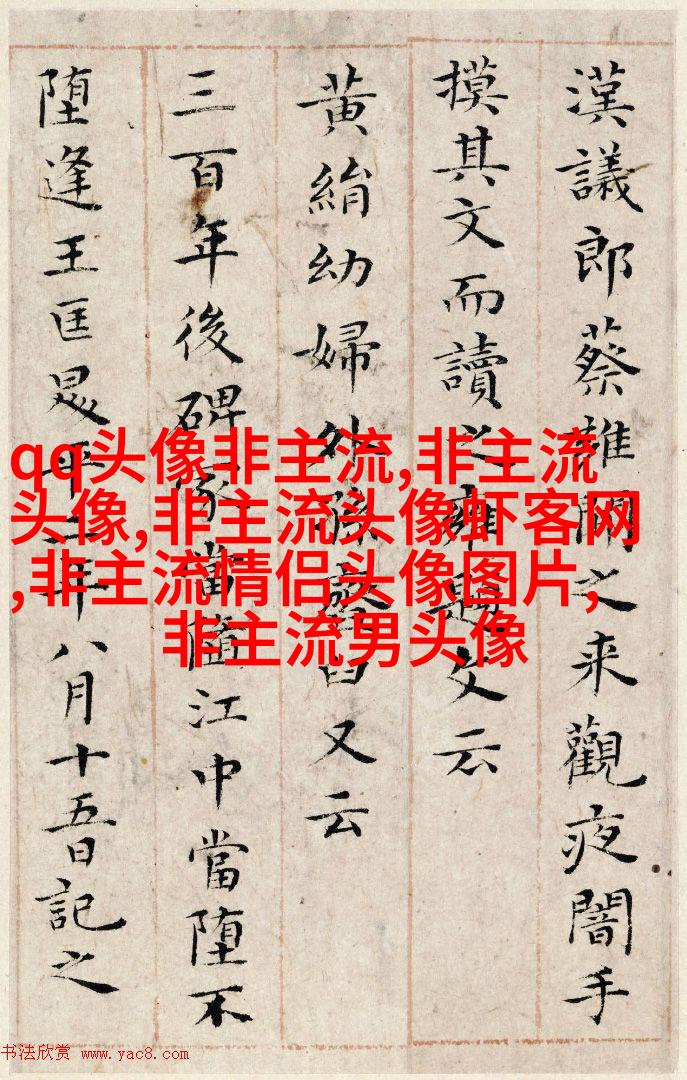 漢議郎蔡雍聞之来觀夜闇手
摸其文而讀之雍題文云
黃絹幼婦外孫齏臼又云
三百年後碑冢當墮江中當墮不
墮逢王匡昇平二年八月十五日記之
qq头像非主流,非主流
头像,非主流头像虾客网
,非主流情侣头像图片,
非主流男头像
书法欣赏 www.yac8.com